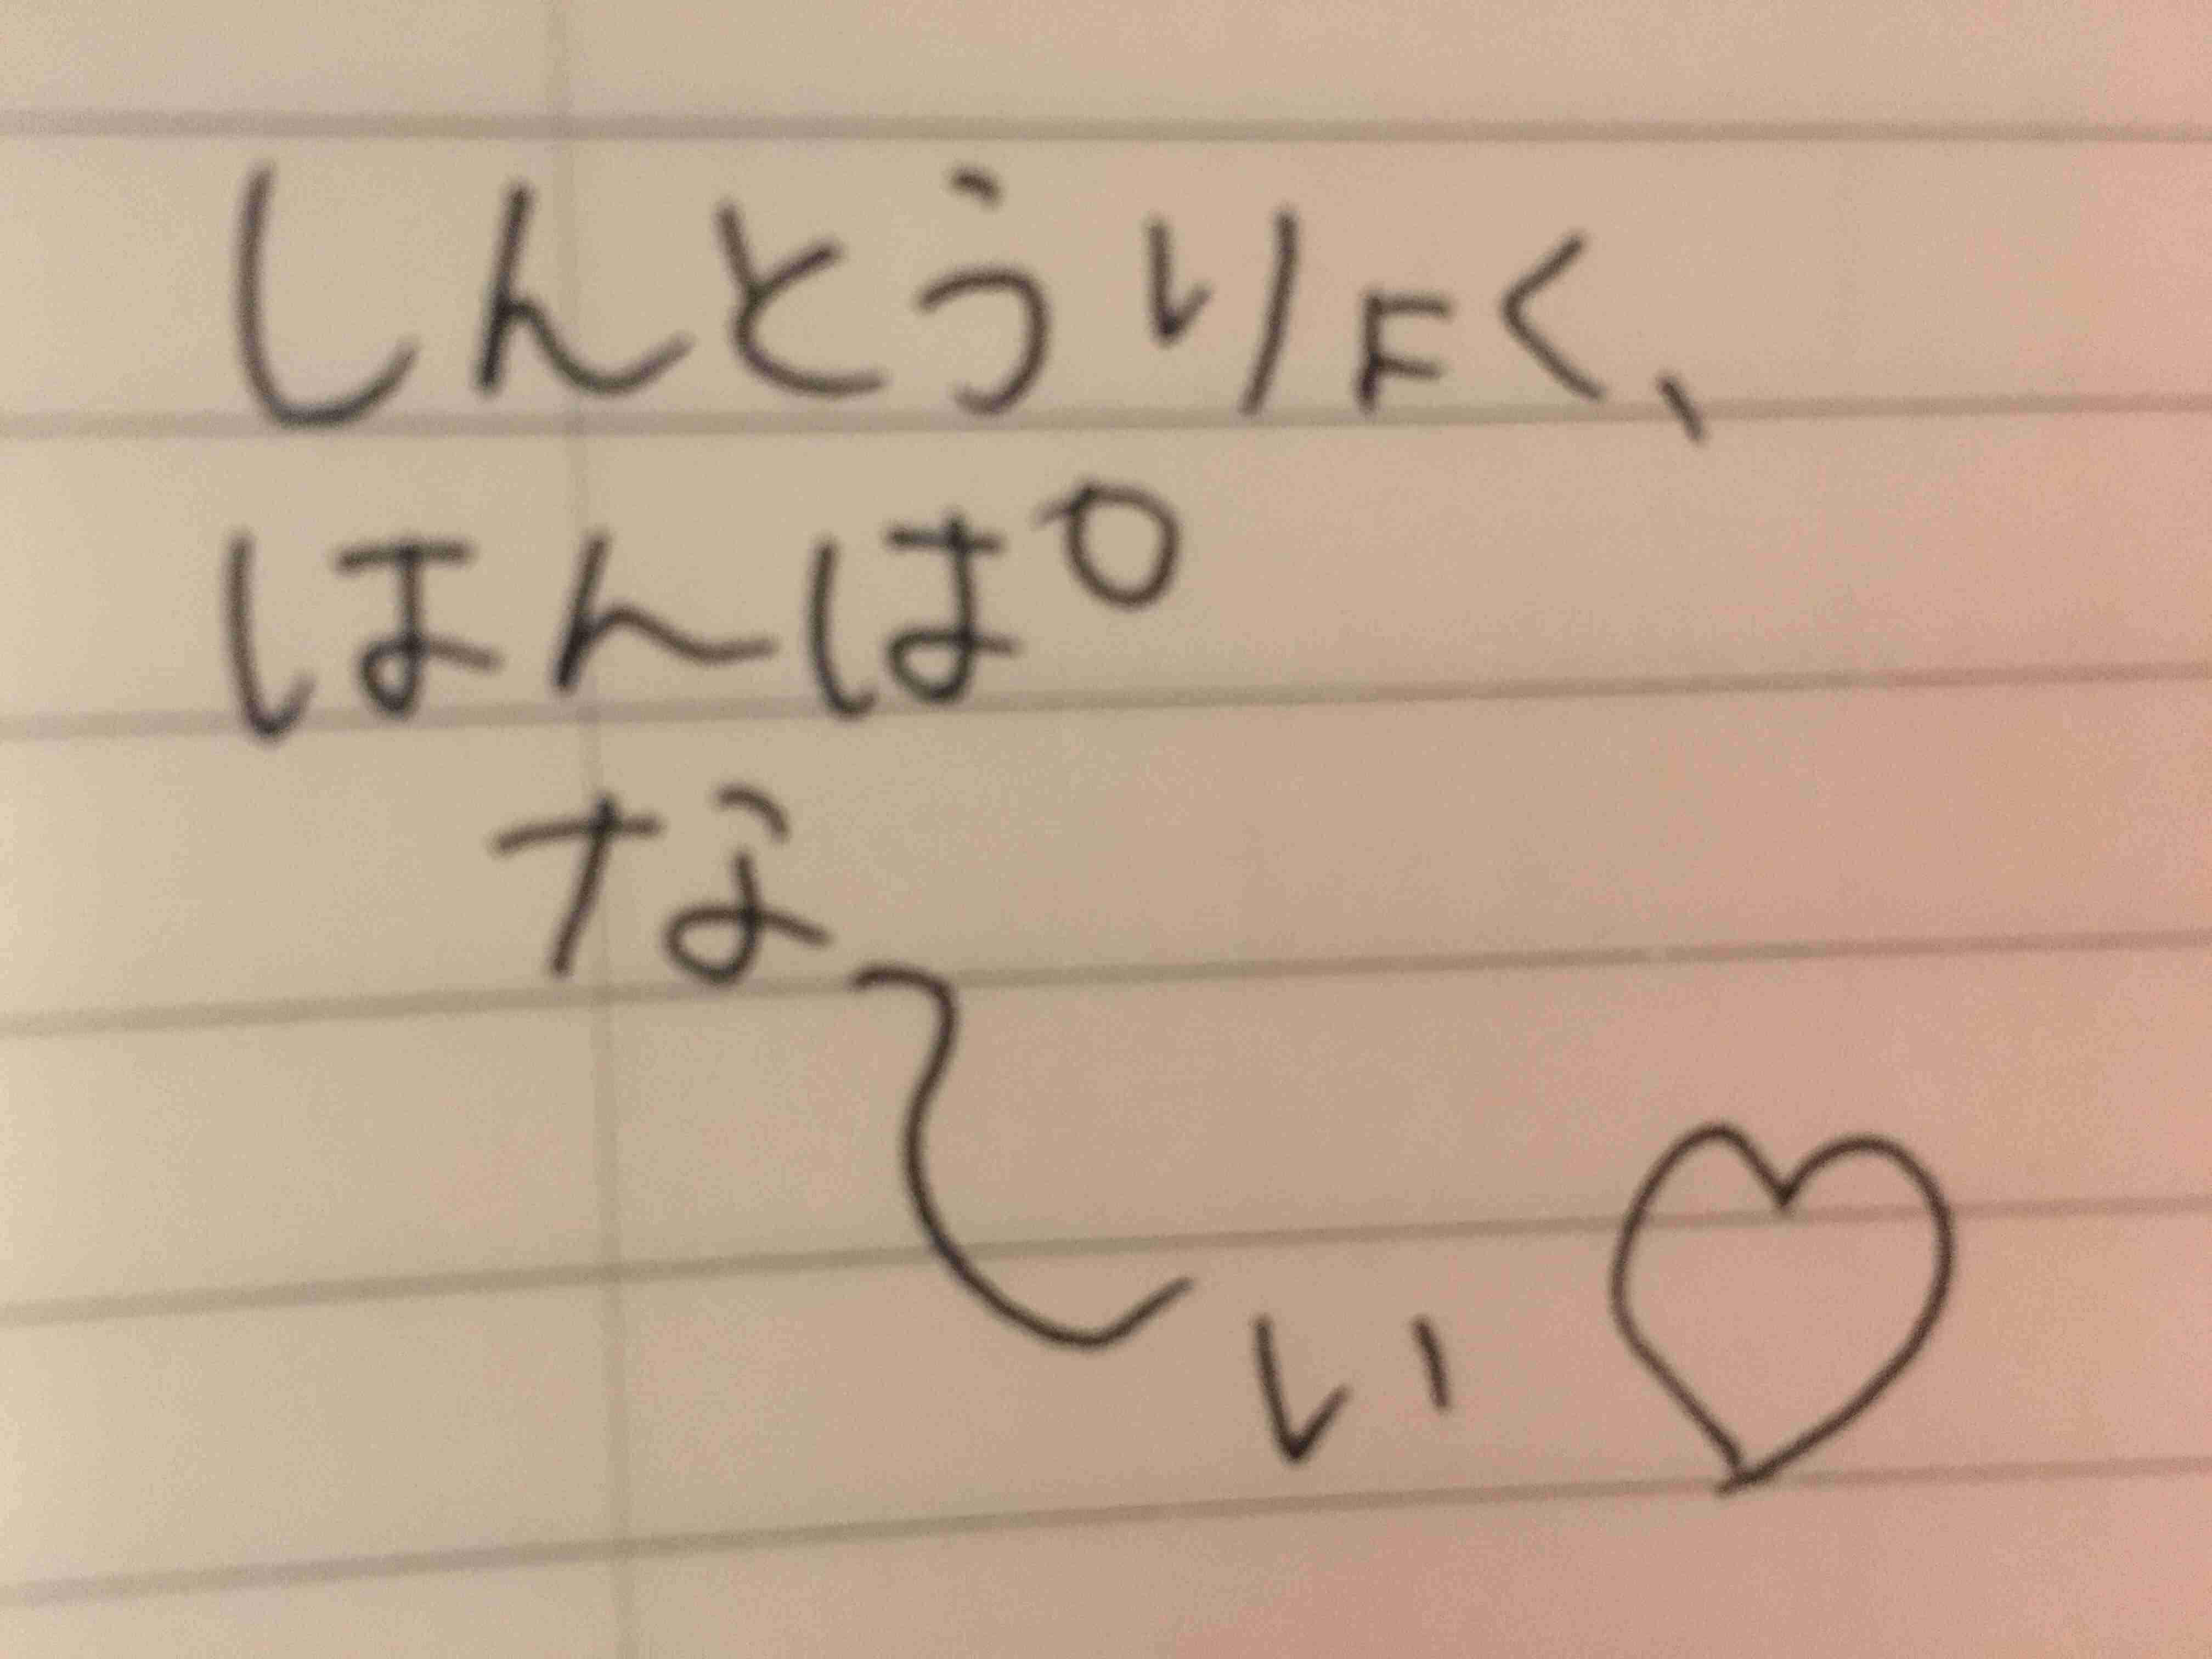 しんとうりょく、
はんぱ
な〜い♡